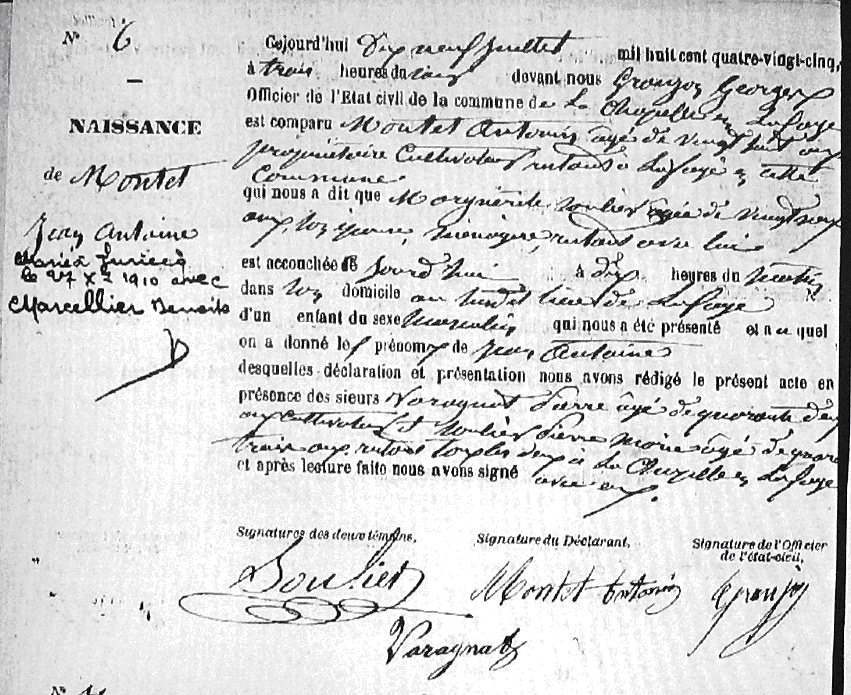 N° 6
NAISSANCE
de Montet
Jean Antoine
Marié à
le 27 Xbre 1910 avec
Marcellier Benoite
Cejourd'hui Dix neuf Juillet mil huit cent quatre-vingt-cinq,
à trois heures du soir devant nous Georges
Officier de l'Etat civil de la commune de La Chapelle en Lafaye
est comparu Montet Antoine âgé de vingt huit ans
propriétaire Cultivateur résidant à Lafaye en cette
Commune
qui nous a dit que Marguerite Soulier âgée de vingt
ans, son épouse, ménagère, résidant avec lui
est accouchée ce jourd'hui à dix heures du matin
dans son domicile au susdit lieu de Lafaye
d'un enfant du sexe masculin qui nous a été présenté et auquel
on a donné les prénoms de Jean Antoine
desquelles déclaration et présentation nous avons rédigé le présent acte en
présence des sieurs Varagnat Pierre âgé de quarante deux
ans Cultivateur et Soulier Pierre âgé de quarante
trois ans résidant tous les deux à La Chapelle en Lafaye
et après lecture faite nous avons signé avec eux.
Signatures des deux témoins,
Signature du Déclarant,
Signature de l'Officier
de l'état-civil,
Soulier
Montet Antoine
Varagnat
N°